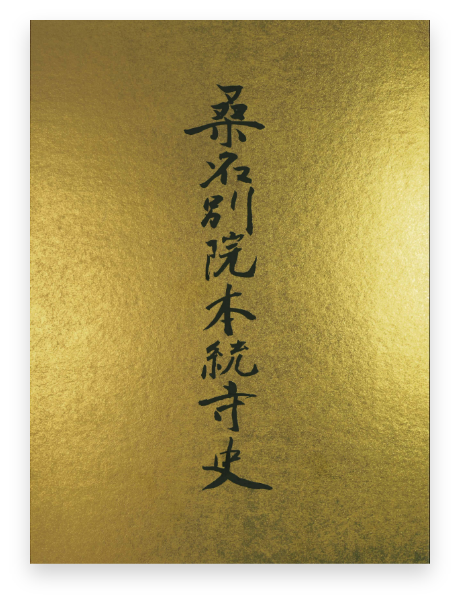 桑名別院本統寺史